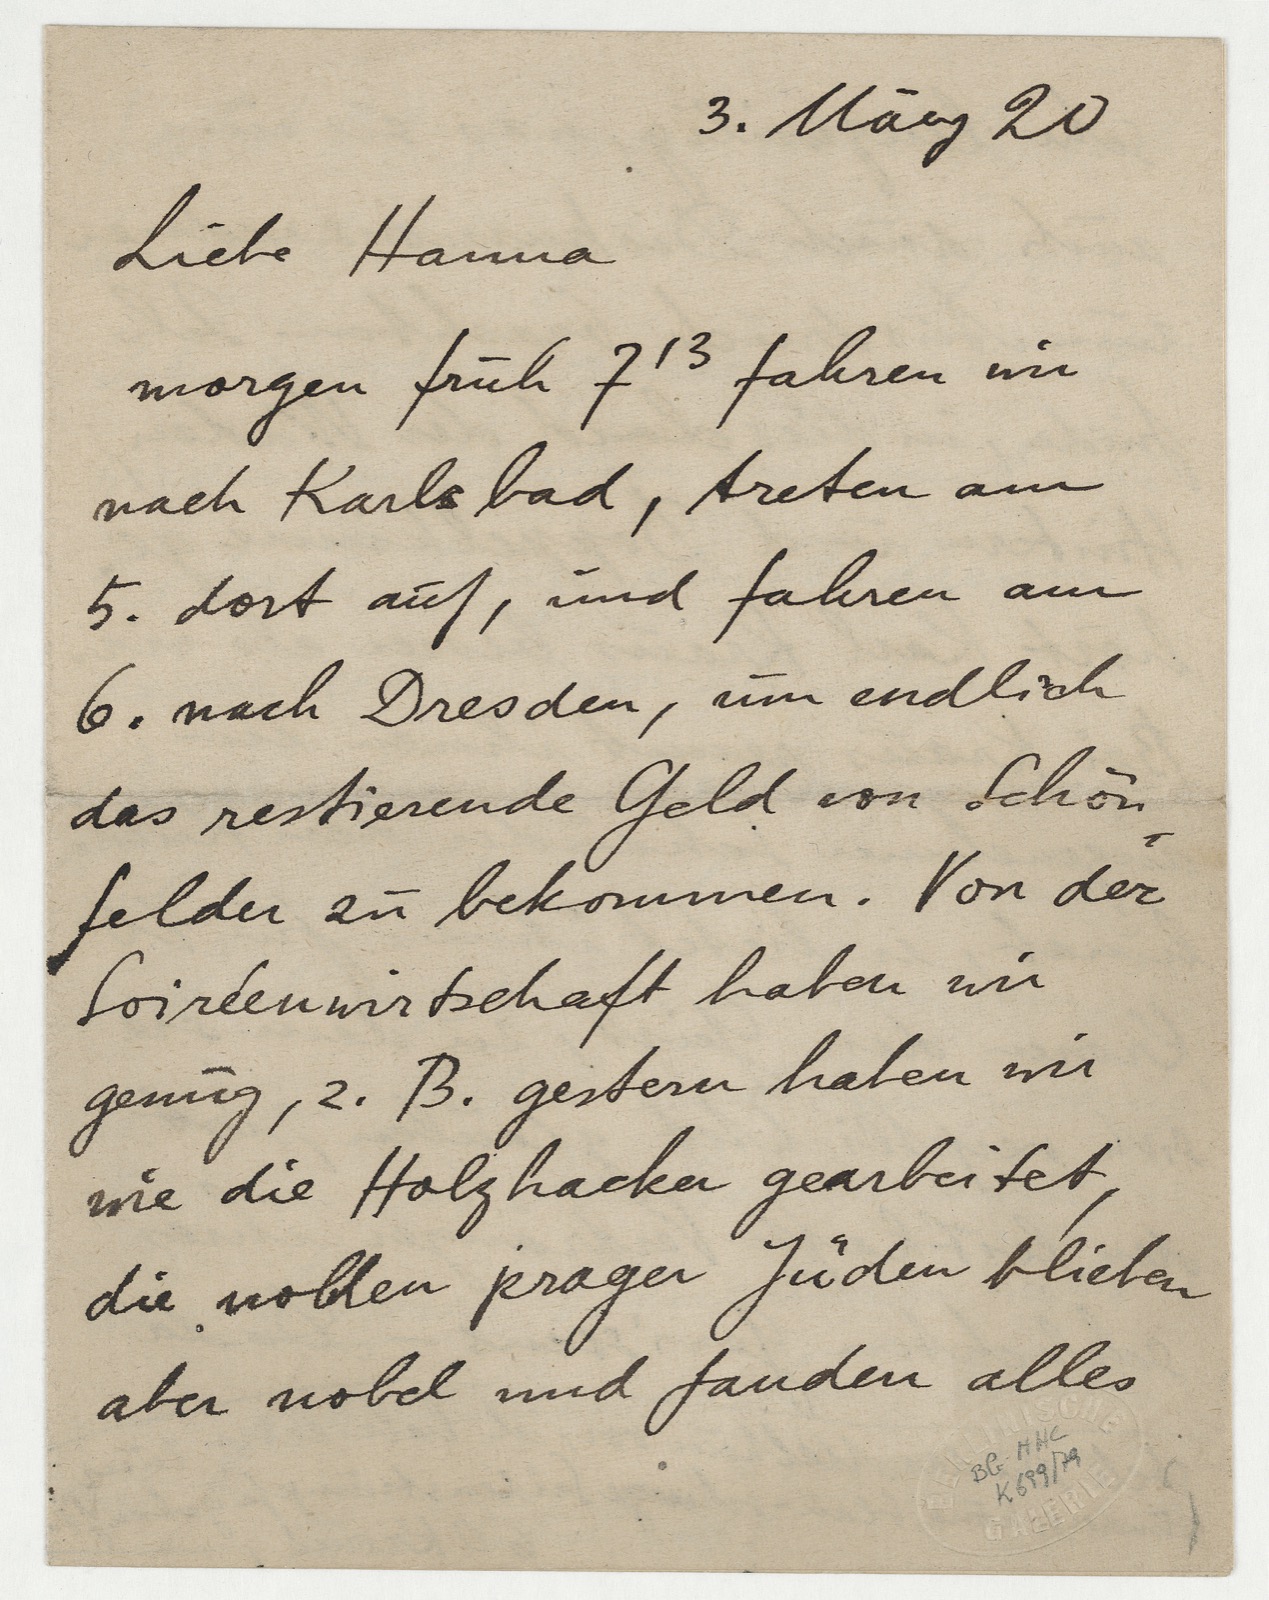 3. März 20
Liebe Hanna
morgen früh 7¹³ fahren wir
nach Karlsbad, treten am
5. dort auf, und fahren am
6. nach Dresden, um endlich
das restierende Geld von Schön-
felder zu bekommen. Von der
Soiréenwirtschaft haben wir
genug, z. B. gestern haben wir
wie die Holzhacker gearbeitet,
die noblen prager Jüden blieben
aber nobel und fanden alles
BERLINISCHE
BG HHC
K 699/79
GALERIE